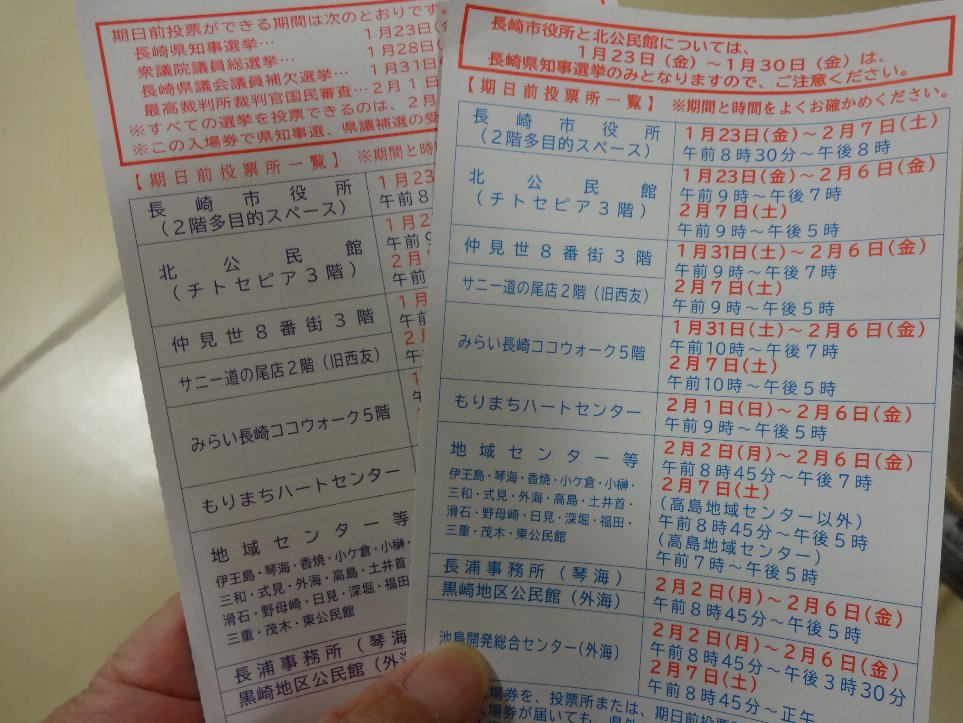 期日前投票ができる期間は次のとおりです。
長崎県知事選挙… 1月23日(金
衆議院議員総選挙… 1月28日(
長崎県議会議員補欠選挙… 1月31日(
最高裁判所裁判官国民審査… 2月1日
※すべての選挙を投票できるのは、2月
※この入場券で県知事選、県議補選の受
【期日前投票所一覧】 ※期間と時
長崎市役所 1月23
(2階多目的スペース) 午前8
北公民館 1月2
(チトセピア3階) 午前9
2月
午前
仲見世8番街3階 1月
午前
サニー道の尾店2階(旧西友) 2
午
みらい長崎ココウォーク5階
もりまちハートセンター
地域センター等
伊王島・琴海・香焼・小ケ倉・小榊・
三和・式見・外海・高島・土井首
滑石・野母崎・日見・深堀・福田
三重・茂木・東公民館
長浦事務所(琴海
黒崎地区公民館(外海
長崎市役所と北公民館については、
1月23日(金)～1月30日(金)は、
長崎県知事選挙のみとなりますので、ご注意ください。
【期日前投票所一覧】 ※期間と時間をよくお確かめください。
長崎市役所 1月23日(金)～2月7日(土)
(2階多目的スペース) 午前8時30分～午後8時
北公民館 1月23日(金)～2月6日(金)
(チトセピア3階) 午前9時～午後7時
2月7日(土)
午前9時～午後5時
仲見世8番街3階 1月31日(土)～2月6日(金)
午前9時～午後7時
サニー道の尾店2階(旧西友) 2月7日(土)
午前9時～午後5時
みらい長崎ココウォーク5階 1月31日(土)～2月6日(金)
午前10時～午後7時
2月7日(土)
午前10時～午後5時
もりまちハートセンター 2月1日(日)～2月6日(金)
午前9時～午後5時
地域センター等 2月2日(月)～2月6日(金)
伊王島・琴海・香焼・小ケ倉・小榊・ 午前8時45分～午後7時
三和・式見・外海・高島・土井首・ 2月7日(土)
滑石・野母崎・日見・深堀・福田・ (高島地域センター以外)
三重・茂木・東公民館 午前8時45分～午後5時
(高島地域センター)
午前7時～午後5時
長浦事務所(琴海) 2月2日(月)～2月6日(金)
黒崎地区公民館(外海) 午前8時45分～午後5時
池島開発総合センター(外海) 2月2日(月)～2月6日(金)
午前8時45分～午後3時30分
2月7日(土)
午前8時45分～正午
入場券を、投票所または、期日前投票
入場券が届いても、